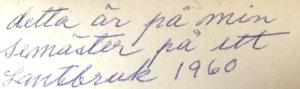 detta är på min
semäster på ett
Lantbruk 1960